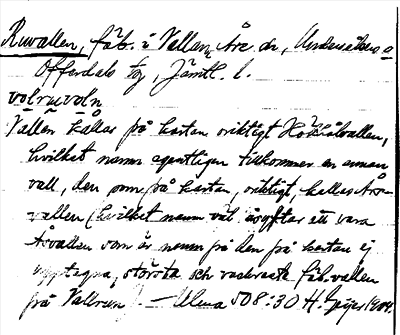 Ruvallen, fäb. i Vallen, Åre sn, Undersåkers o
Offerdals tg, Jämtl. l.
volruvoln
Vallen kallas på kartan oriktigt
hvilket namn egentligen tillkommer en annan
vall, den som på kartan, oriktigt, kallas Åro-
vallen (hvilket namn väl åsyftar att vara
Åsvallen som är namn på den på kartan ej
upptagna, största och vackraste fäb.vallen
på Vallrun). — Ulma 508:30 H. Geijer 1904.